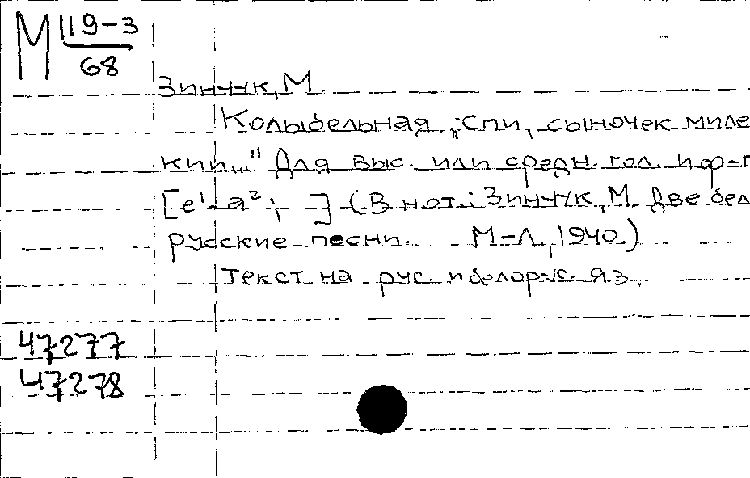 М 119-3
68
Зинчук, М
Колыбельная „Спи, сыночек миле
кий..." Для выс. или средн. гол. и ф-п
[e¹-a²; ] (В нот.: Зинчук, М. Две бел
русские песни. М-Л, 1940.)
Текст на рус. и белорус яз.
47277
47278